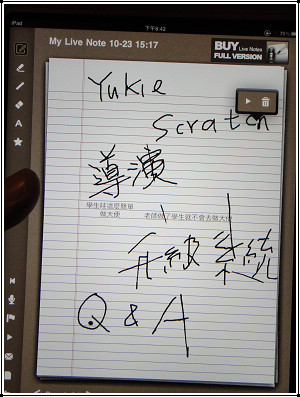 iPad
下午6:42
My Live Note 10-23 15:17
BUY Live Notes
FULL VERSION
Yukie
Scratch
導演
學生話這麼簡單
做大使
老師做了學生就不會去做大使
升級系統
Q & A